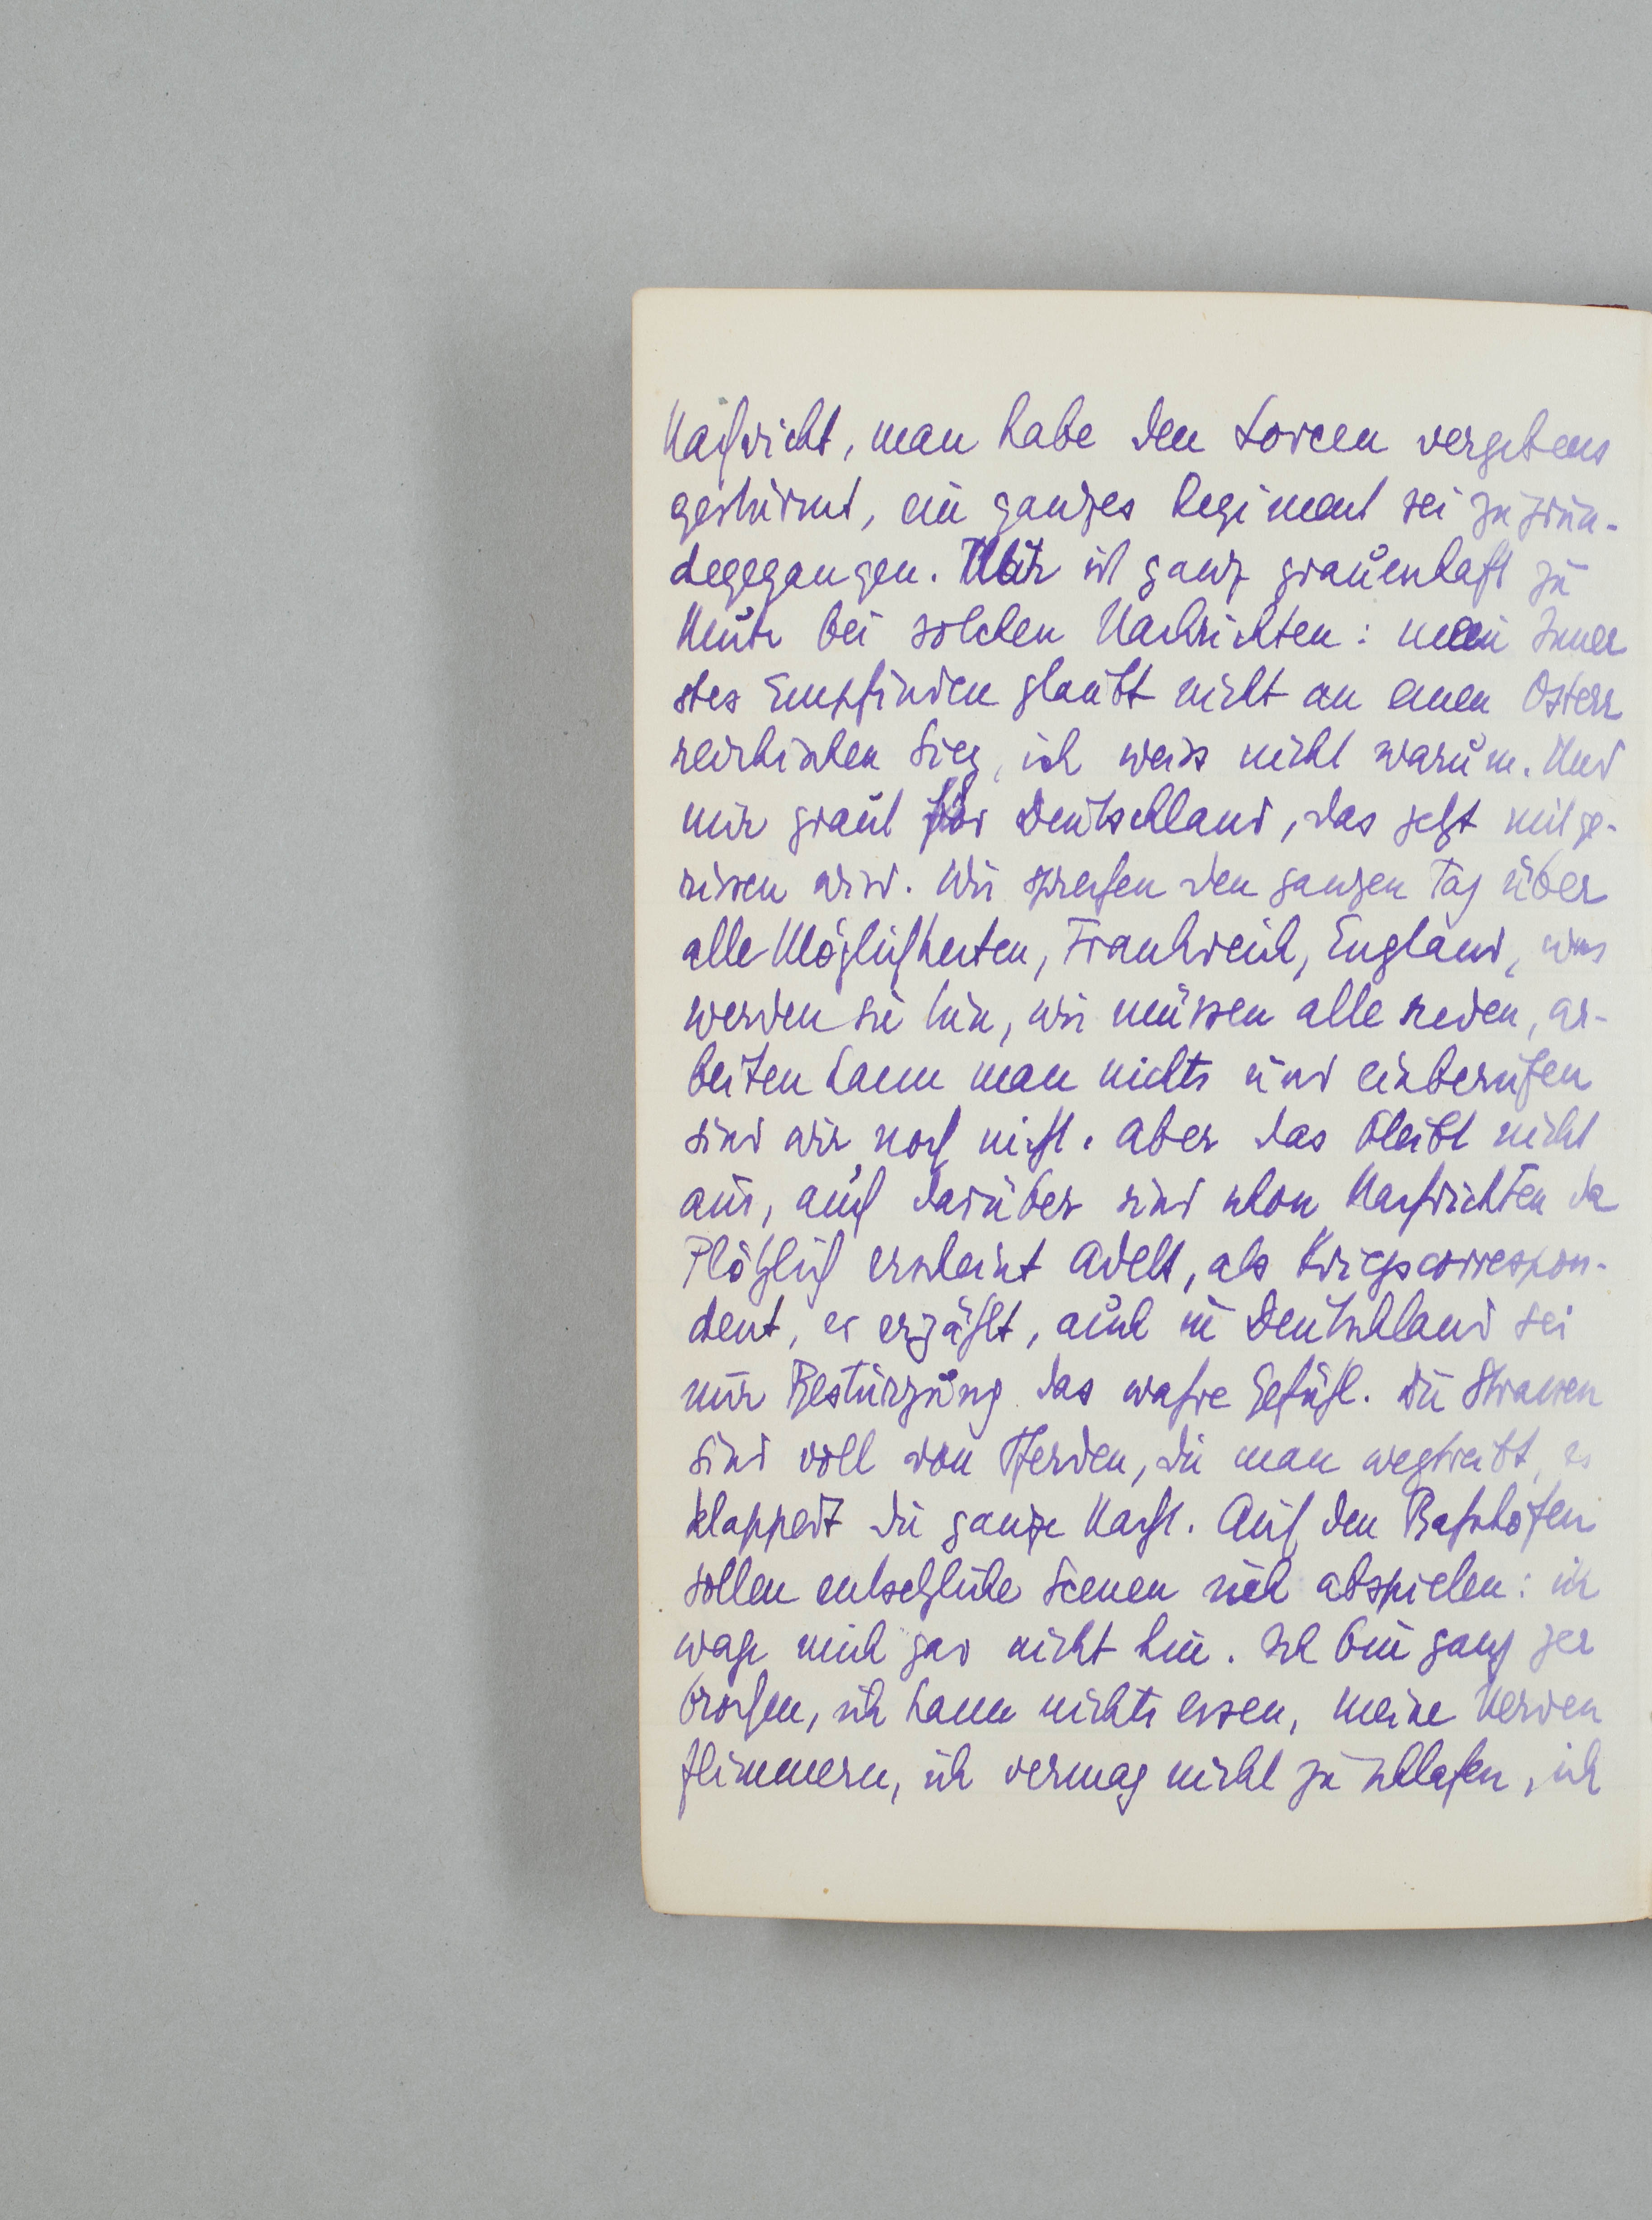 Nachricht, man habe den Lovcen vergebens
gestürmt, ein ganzes Regiment sei zugrun-
degegangen. Mir ist ganz grauenhaft zu
Mute bei solchen Nachrichten: mein Inner
stes Empfinden glaubt nicht an einen Österr
reichischen Sieg, ich weiss nicht warum. Und
mir graut für Deutschland, das jetzt mitge-
rissen wird. Wir sprechen den ganzen Tag über
alle Möglichkeiten, Frankreich, England, was
werden sie tun, wir müssen alle reden, ar-
beiten kann man nichts und einberufen
sind wir noch nicht. Aber das bleibt nicht
aus, auch darüber sind schon Nachrichten da
Plötzlich erscheint Adelt, als Kriegscorrespon-
dent, er erzählt, auch in Deutschland sei
nur Bestürzung das wahre Gefühl. Die Strassen
sind voll von Pferden, die man wegtreibt, es
klappert die ganze Nacht. Auf den Bahnhöfen
sollen entsetzliche Scenen sich abspielen: ich
wage mich gar nicht hin. Ich bin ganz zer
brochen, ich kann nichts essen, meine Nerven
flimmern, ich vermag nicht zu schlafen, ich